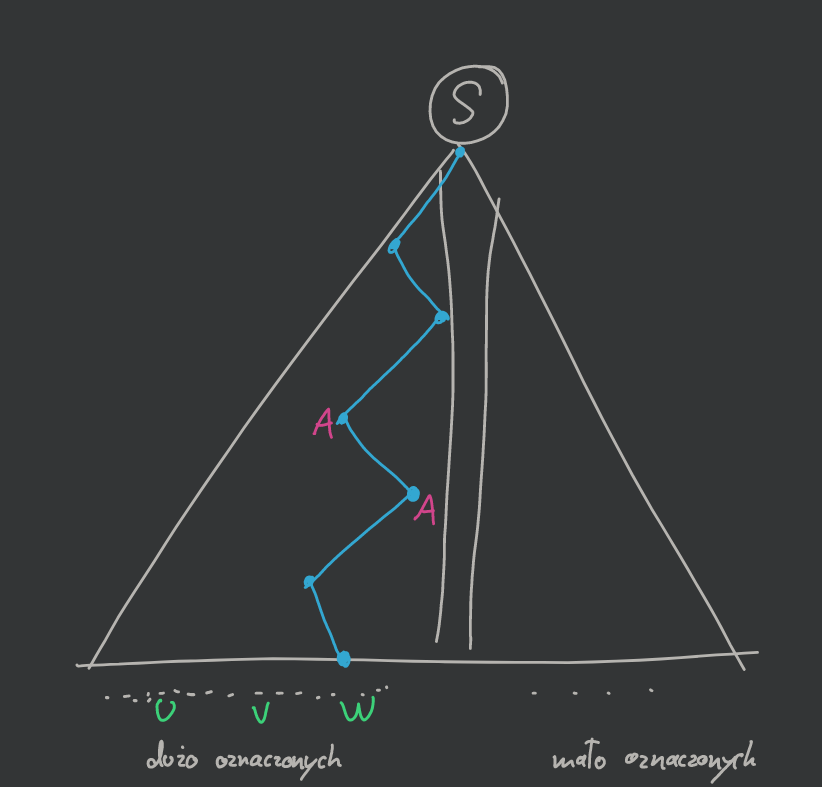 S
A
A
U V W
dużo oznaczonych mało oznaczonych